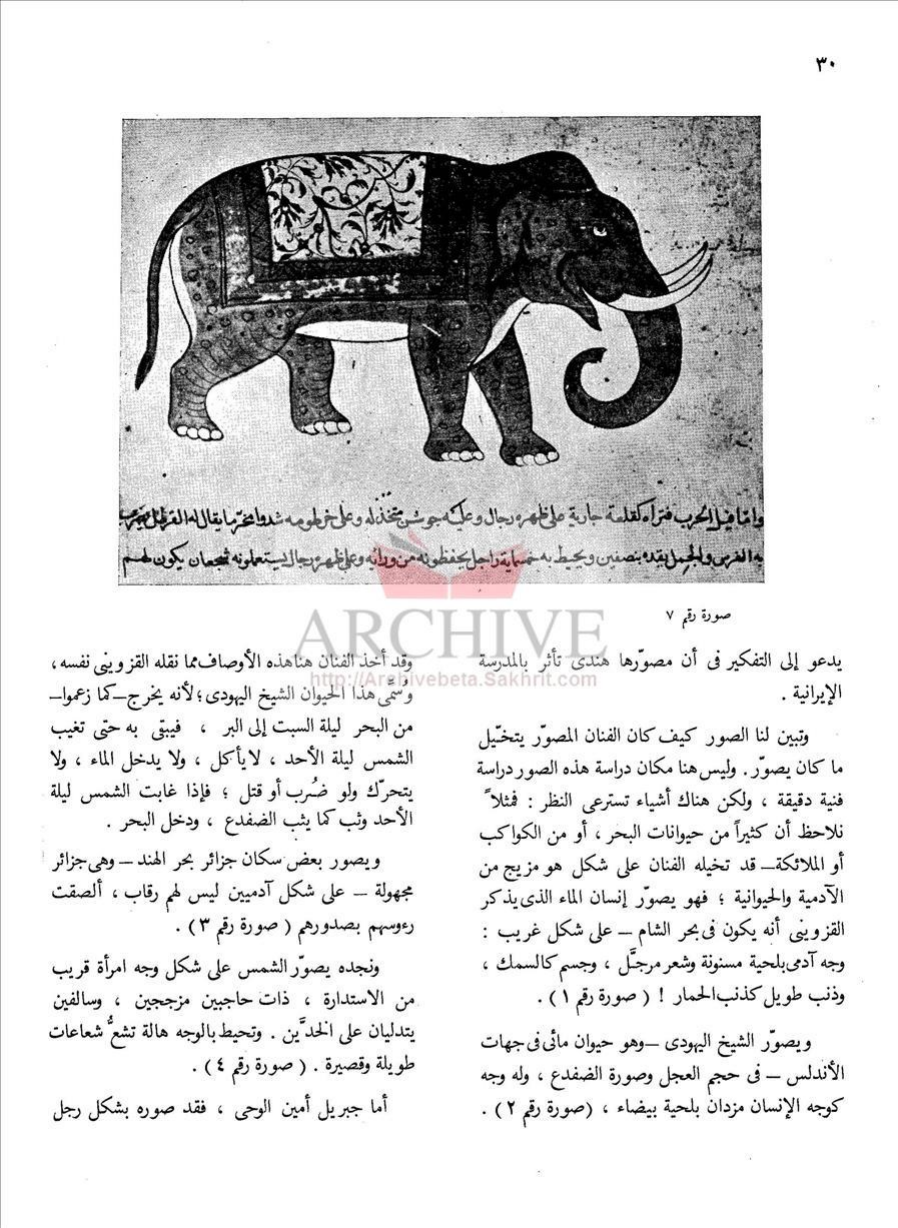 ٣٠
وأما فيل الحرب فتراه كقلعة جارية على ظهره رجال وعليه جوشن متخذ له وعلى خرطومه شدوا
الفرس والجمل يقده بنصفين ويحيط به خمسماية راجل يحفظونه من ورائه وعلى ظهره رجال يستعملونه شجعان يكون لهم
صورة رقم ٧
ARCHIVE
http://Archivebeta.Sakhrit.com
يدعو إلى التفكير فى أن مصوّرها هندى تأثر بالمدرسة
الإيرانية .
وتبين لنا الصور كيف كان الفنان المصوّر يتخيّل
ما كان يصوّر . وليس هنا مكان دراسة هذه الصور دراسة
فنية دقيقة ، ولكن هناك أشياء تسترعى النظر : فمثلاً
نلاحظ أن كثيراً من حيوانات البحر ، أو من الكواكب
أو الملائكة – قد تخيله الفنان على شكل هو مزيج من
الآدمية والحيوانية ؛ فهو يصوّر إنسان الماء الذى يذكر
القزوينى أنه يكون فى بحر الشام – على شكل غريب :
وجه آدمى بلحية مسنونة وشعر مرجّل ، وجسم كالسمك ،
وذنب طويل كذنب الحمار ! ( صورة رقم ١ ) .
ويصوّر الشيخ اليهودى – وهو حيوان مائى فى جهات
الأندلس – فى حجم العجل وصورة الضفدع ، وله وجه
كوجه الإنسان مزدان بلحية بيضاء ، ( صورة رقم ٢ ) .
وقد أخذ الفنان هنا هذه الأوصاف مما نقله القزوينى نفسه ،
وسُمّى هذا الحيوان الشيخ اليهودى ؛ لأنه يخرج – كما زعموا –
من البحر ليلة السبت إلى البر ، فيبقى به حتى تغيب
الشمس ليلة الأحد ، لا يأكل ، ولا يدخل الماء ، ولا
يتحرّك ولو ضُرب أو قتل ؛ فإذا غابت الشمس ليلة
الأحد وثب كما يثب الضفدع ، ودخل البحر .
ويصور بعض سكان جزائر بحر الهند – وهى جزائر
مجهولة – على شكل آدميين ليس لهم رقاب ، ألصقت
رءوسهم بصدورهم ( صورة رقم ٣ ) .
ونجده يصوّر الشمس على شكل وجه امرأة قريب
من الاستدارة ، ذات حاجبين مزججين ، وسالفين
يتدليان على الخدَّين . وتحيط بالوجه هالة تشعُّ شعاعات
طويلة وقصيرة . ( صورة رقم ٤ ) .
أما جبريل أمين الوحى ، فقد صوره بشكل رجل